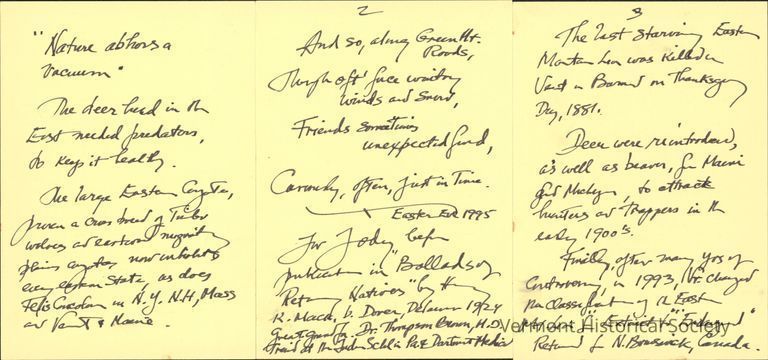 "Nature abhors a
vacuum"
The deer herd in the
East needed predators,
to keep it healthy.
The large Eastern Coyote,
proven a cross breed of Timber
wolves and eastward migrating
plains coyotes now inhabits
every eastern State, as does
Felis Concolor in N.Y. N.H, Mass
and Vermt & Maine.
2
And so, along Green Mt.
Roads,
Though oft' face wintry
winds and snow,
Friends sometimes
unexpected found,
Comedy, often, just in Time.
Easter Eve 1995
For Jody, before
publication in "Ballads of
Returning Natives" by H
R. Mack, b. Dover, Delaware 1924
Great grandson Dr. Thompson Brown, M.D.
3
The last starving Eastern
Mountain Lion was killed in
Vermt in Barnard on Thanksgiving
Day, 1881.
Deer were reintroduced,
as well as beaver, from Maine
and Michigan, to attract
hunters and Trappers in the
early 1900's.
Finally, after many yrs of
Controversy, in 1993, Vt. changed
the classification of the Eastern
"Extinct" "Endangered"
Return from N. Brunswick, Canada.
Vermont Historical Society